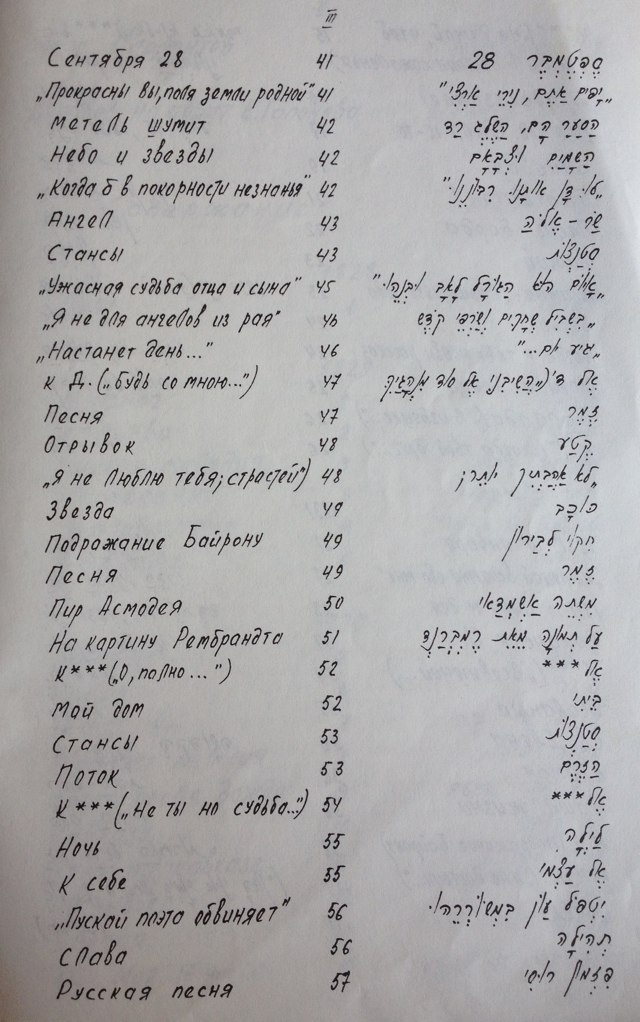 III
Сентября 28 41 סֶפְּטֶמְבֶּר 28
„Прекрасны вы, поля земли родной" 41 „יָפִים אַתֶּם, נִירֵי אַרְצִי"
Метель шумит 42 הַסַּעַר הָם, הַשֶּׁלֶג רַד
Небо и звезды 42 הַשָּׁמַיִם וּצְבָאָם
„Когда б в покорности незнанья" 42 „לוּ דָן אוֹתָנוּ רִבּוֹנֵנוּ"
Ангел 43 שַׂר-אֱלֹיהַּ
Стансы 43 סְטַנְצוֹת
„Ужасная судьба отца и сына" 45 „אָיֹם הוּא הַגּוֹרָל לְאָב וּבְנֵהוּ"
„Я не для ангелов из рая" 46 „בִּשְׁבִיל שְׁחָקִים וְשַׂרְפֵי קֹדֶשׁ
„Настанет день..." 46 „יַגִּיעַ יוֹם..."
К Д. („Будь со мною...") 47 אֶל ד'(„הֲשִׁיבֵנִי אֶל סוֹד מִנְהָגַיִךְ
Песня 47 זֶמֶר
Отрывок 48 קֶטַע
„Я не люблю тебя; страстей") 48 „לֹא אֲהַבְתִּיךְ יוֹתֵר
Звезда 49 כּוֹכָב
Подражание Байрону 49 חִקּוּי לְבַּיְרוֹן
Песня 49 זֶמֶר
Пир Асмодея 50 מִשְׁתֵּה אַשְׁמְדַאי
На картину Рембрандта 51 עַל תְּמוּנָה מֵאֵת רֶמְבְּרַנְדְּ
К*** („О, полно...") 52 אֶל ***
Мой дом 52 בֵּיתִי
Стансы 53 סְטַנְצוֹת
Поток 53 הַזֶּרֶם
К *** („Не ты но судьба...") 54 אֶל ***
Ночь 55 לַיְלָה
К себе 55 אֶל עַצְמִי
„Пускай поэта обвиняет" 56 יִטְפֹּל עָווֹן בִּמְשׁוֹרְרֵהוּ
Слава 56 תְּהִילָה
Русская песня 57 פִּזְמוֹן רוּסִי